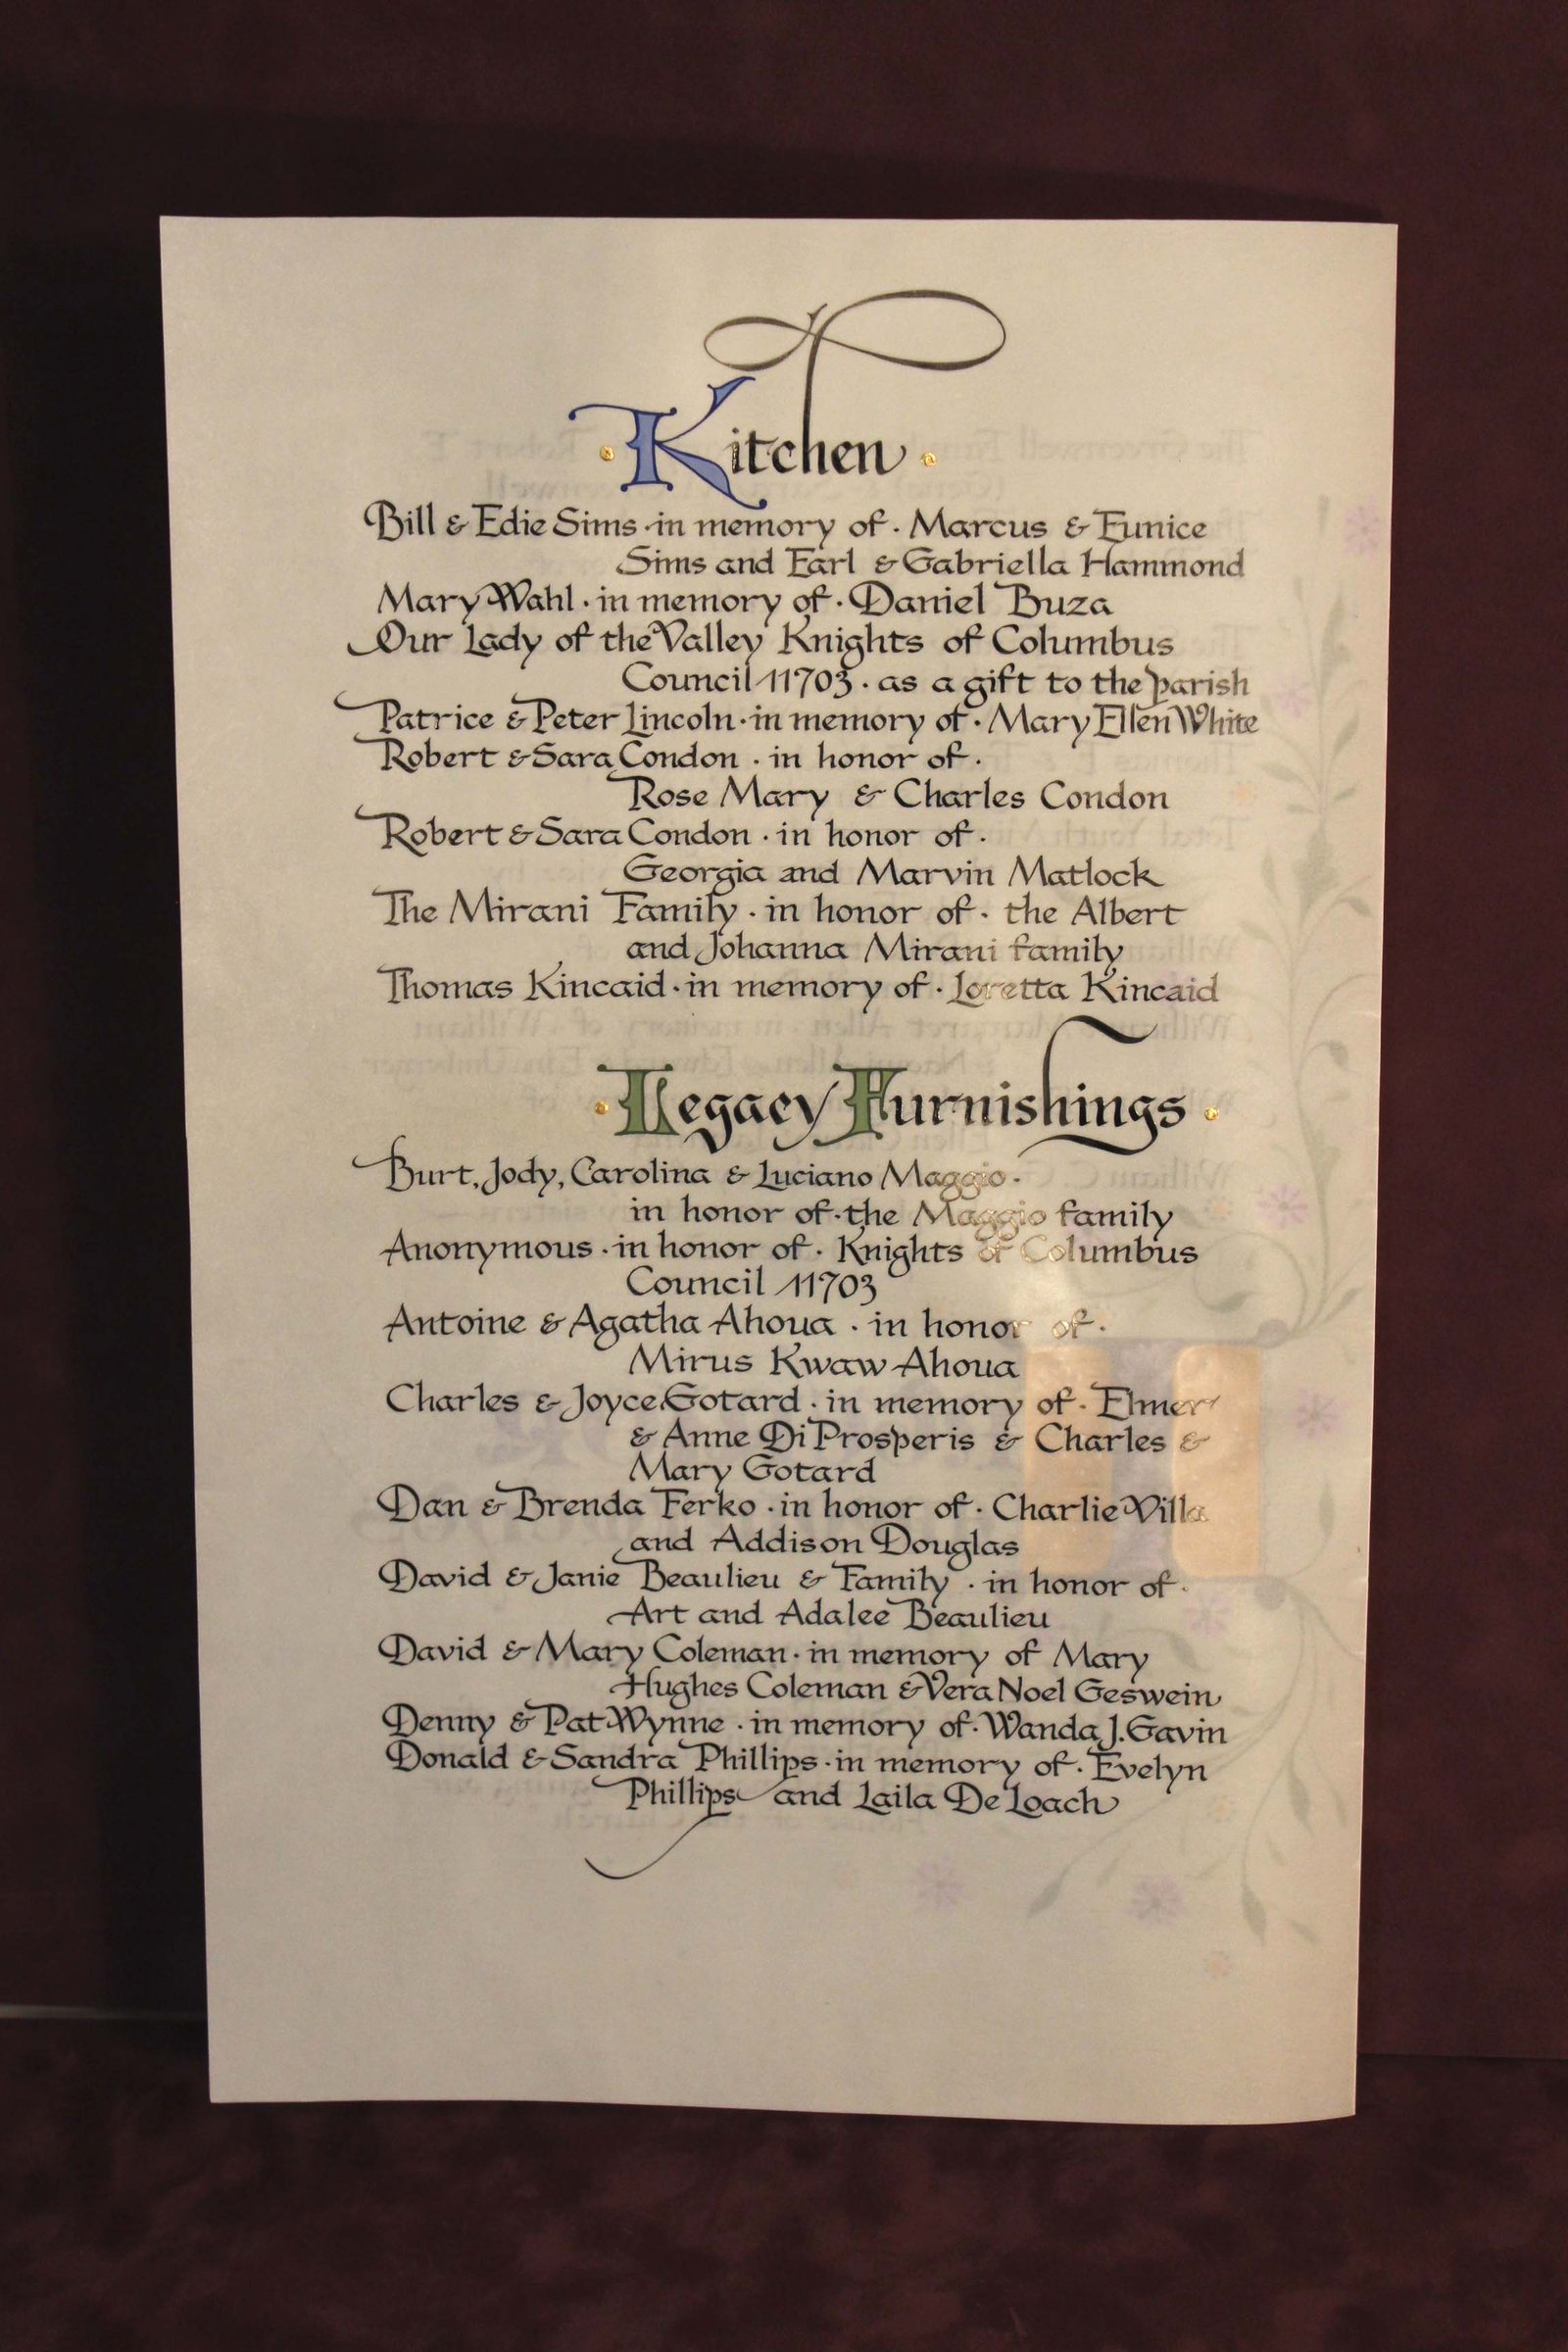 · Kitchen ·
Bill & Edie Sims · in memory of · Marcus & Eunice
Sims and Earl & Gabriella Hammond
Mary Wahl · in memory of · Daniel Buza
Our Lady of the Valley Knights of Columbus
Council 11703 · as a gift to the parish
Patrice & Peter Lincoln · in memory of · Mary Ellen White
Robert & Sara Condon · in honor of ·
Rose Mary & Charles Condon
Robert & Sara Condon · in honor of ·
Georgia and Marvin Matlock
The Mirani Family · in honor of · the Albert
and Johanna Mirani family
Thomas Kincaid · in memory of · Loretta Kincaid
· Legacy Furnishings ·
Burt, Jody, Carolina & Luciano Maggio ·
in honor of · the Maggio family
Anonymous · in honor of · Knights of Columbus
Council 11703
Antoine & Agatha Ahoua · in honor of ·
Mirus Kwaw Ahoua
Charles & Joyce Gotard · in memory of · Elmer
& Anne DiProsperis & Charles &
Mary Gotard
Dan & Brenda Ferko · in honor of · Charlie Villa
and Addison Douglas
David & Janie Beaulieu & Family · in honor of ·
Art and Adalee Beaulieu
David & Mary Coleman · in memory of Mary
Hughes Coleman & Vera Noel Geswein
Denny & Pat Wynne · in memory of · Wanda J. Gavin
Donald & Sandra Phillips · in memory of · Evelyn
Phillips and Laila DeLoach